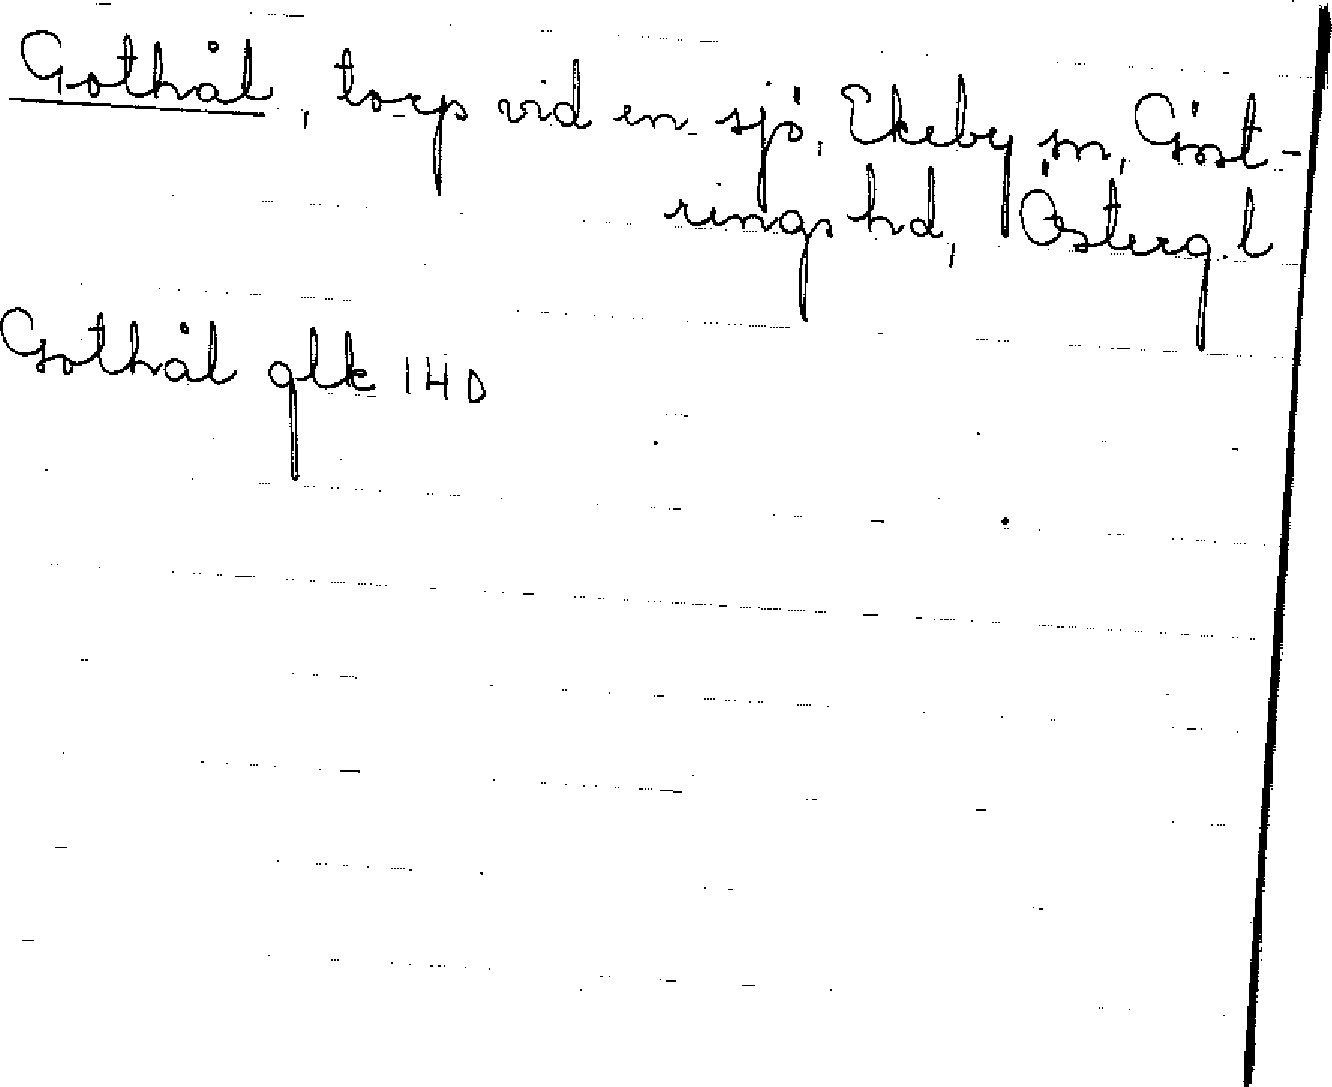 Gothål, torp vid en sjö, Ekeby sn, Göst-
rings hd, Österg.l
Gothål glk 140